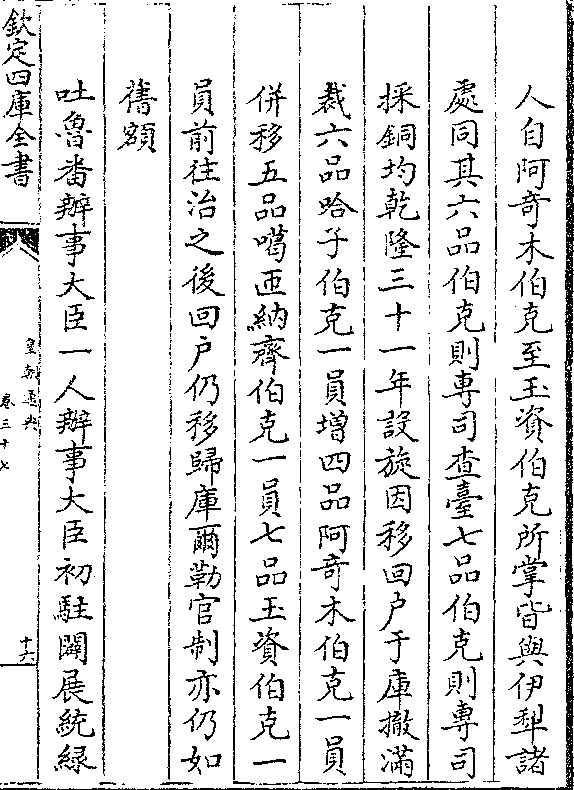 人自阿奇木伯克至玉資伯克所掌皆與伊犁諸
處同其六品伯克則專司查臺七品伯克則專司
採銅均乾隆三十一年設旋因移回户于庫撤滿
裁六品哈子伯克一員增四品阿奇木伯克一員
併移五品噶匝納齊伯克一員七品玉資伯克一
員前往治之後回户仍移歸庫爾勒官制亦仍如
舊額
吐魯番辦事大臣一人辦事大臣初駐闢展統緑
欽定四庫全書
皇朝通典
卷三十七
十六